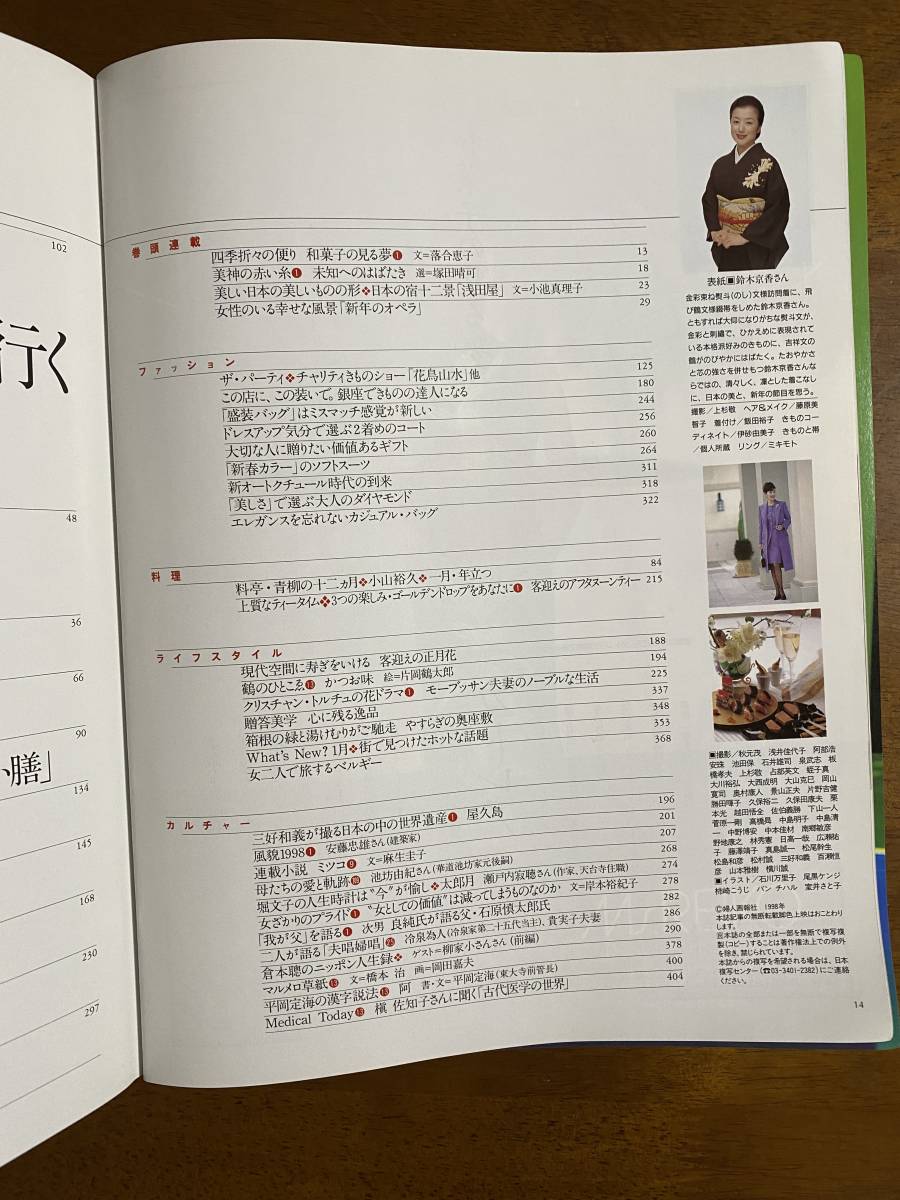 102
行く
48
36
66
90
膳」
134
145
168
230
251
297
巻頭連載
四季折々の便り 和菓子の見る夢❶ 文=落合恵子 13
美神の赤い糸❶ 未知へのはばたき 選=塚田晴可 18
美しい日本の美しいものの形❖日本の宿十二景「浅田屋」 文=小池真理子 23
女性のいる幸せな風景「新年のオペラ」 29
ファッション
ザ・パーティ❖チャリティきものショー「花鳥山水」他 125
この店に、この装いで。銀座できものの達人になる 180
「盛装バッグ」はミスマッチ感覚が新しい 244
ドレスアップ気分で選ぶ2着めのコート 256
大切な人に贈りたい価値あるギフト 260
「新春カラー」のソフトスーツ 264
新オートクチュール時代の到来 311
「美しさ」で選ぶ大人のダイヤモンド 318
エレガンスを忘れないカジュアル・バッグ 322
料理
料亭・青柳の十二ヵ月❖小山裕久❖一月・年立つ 84
上質なティータイム❖3つの楽しみ・ゴールデンドロップをあなたに❶ 客迎えのアフタヌーンティー 215
ライフスタイル
現代空間に寿ぎをいける 客迎えの正月花 188
鶴のひとこゑ⓭ かつお味 絵=片岡鶴太郎 194
クリスチャン・トルチュの花ドラマ❶ モープッサン夫妻のノーブルな生活 225
贈答美学 心に残る逸品 337
箱根の緑と湯けむりがご馳走 やすらぎの奥座敷 348
What's New? 1月❖街で見つけたホットな話題 353
女二人で旅するベルギー 368
カルチャー
三好和義が撮る日本の中の世界遺産❶ 屋久島 196
風貌1998❶ 安藤忠雄さん(建築家) 201
連載小説 ミツコ❾ 文=麻生圭子 207
母たちの愛と軌跡 池坊由紀さん(華道池坊家元後嗣) 268
堀文子の人生時計は“今”が愉し❖太郎月 瀬戸内寂聴さん(作家、天台寺住職) 274
女ざかりのプライド❶ “女としての価値”は減ってしまうものなのか 文=岸本裕紀子 278
「我が父」を語る❶ 次男 良純氏が語る父・石原慎太郎氏 282
二人が語る「夫唱婦唱」 冷泉為人(冷泉家第二十五代当主)、貴実子夫妻 286
倉本聰のニッポン人生録❖ ゲスト=柳家小さんさん(前編) 290
マルメロ草紙⓭ 文=橋本 治 画=岡田嘉夫 378
平岡定海の漢字説法⓭ 阿 書・文=平岡定海(東大寺前管長) 400
Medical Today⓭ 槇 佐知子さんに聞く「古代医学の世界」 404
表紙■鈴木京香さん
金彩束ね熨斗(のし)文様訪問着に、飛
び鶴文様綴帯をしめた鈴木京香さん。
ともすれば大仰になりがちな熨斗文が、
金彩と刺繍で、ひかえめに表現されて
いる本格派好みのきものに、吉祥文の
鶴がのびやかにはばたく。たおやかさ
と芯の強さを併せもつ鈴木京香さんな
らではの、清々しく、凛とした着こなし
に、日本の美と、新年の節目を思う。
撮影/上杉敬 ヘア&メイク/藤原美
智子 着付け/飯田裕子 きものコー
ディネイト/伊砂由美子 きものと帯
/個人所蔵 リング/ミキモト
■撮影/秋元茂 浅井佳代子 阿部浩
安珠 池田保 石井雄司 泉武志 板
橋孝夫 上杉敬 占部英文 蛭子真
大川裕弘 大西成明 大山克巳 岡山
寛司 奥村康人 景山正夫 片野吉健
勝田暉子 久保裕二 久保田康夫 栗
本光 越田悟全 佐伯義勝 下山一人
菅原一剛 高橋昇 中島明子 中島清
一 中野博安 中本佳材 南郷敏彦
野地康之 林秀憲 日高一哉 広瀬祐
子 藤澤靖子 真島誠一 松尾幹生
松島和彦 松村誠 三好和義 百瀬恒
彦 山本雅樹 横川誠
■イラスト/石川万里子 尾黒ケンジ
柿崎こうじ バン チハル 室井さと子
©婦人画報社 1998年
本誌記事の無断転載脚色上映はおことわり
します。
®本誌の全部または一部を無断で複写複
製(コピー)することは著作権法上での例外
を除き、禁じられています。
本誌からの複写を希望される場合は、日本
複写センター(☎03-3401-2382)にご連絡
ください。
14